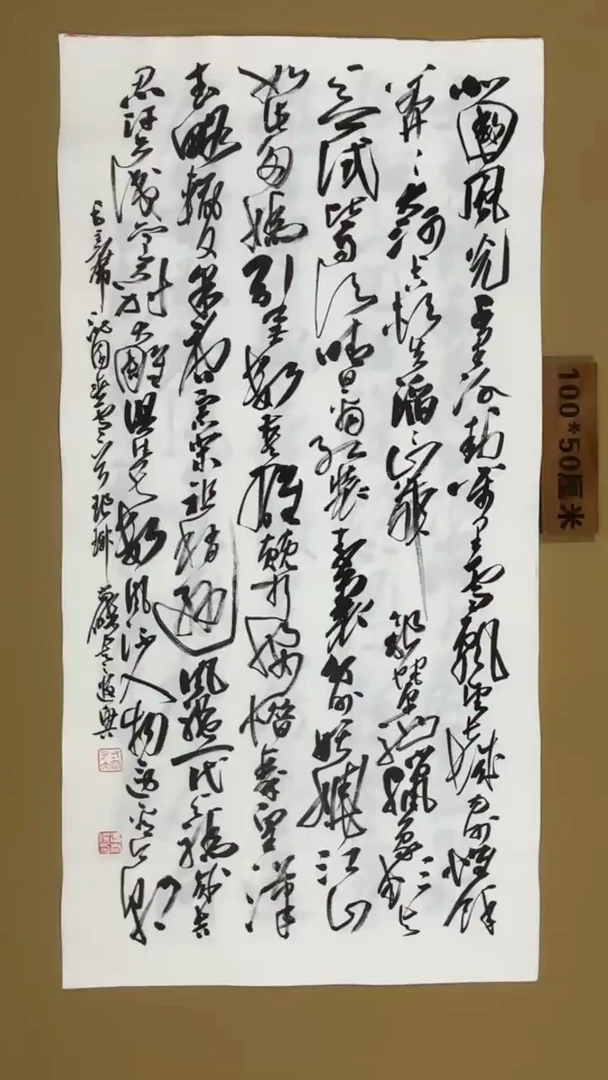 北國風光千里冰封万里雪飘望长城内外惟余
莽〻大河上下顿失滔〻山舞银蛇原驰蠟象
试比高须晴日看红装素裹分外妖娆江山
如此多娇引无数英雄竞折腰惜秦皇汉
武略输文采唐宗宋祖稍逊风骚一代天骄成吉
思汗只识弯弓射大雕俱往矣数风流人物还看今朝
毛主席沁园春雪一首
100*50厘米